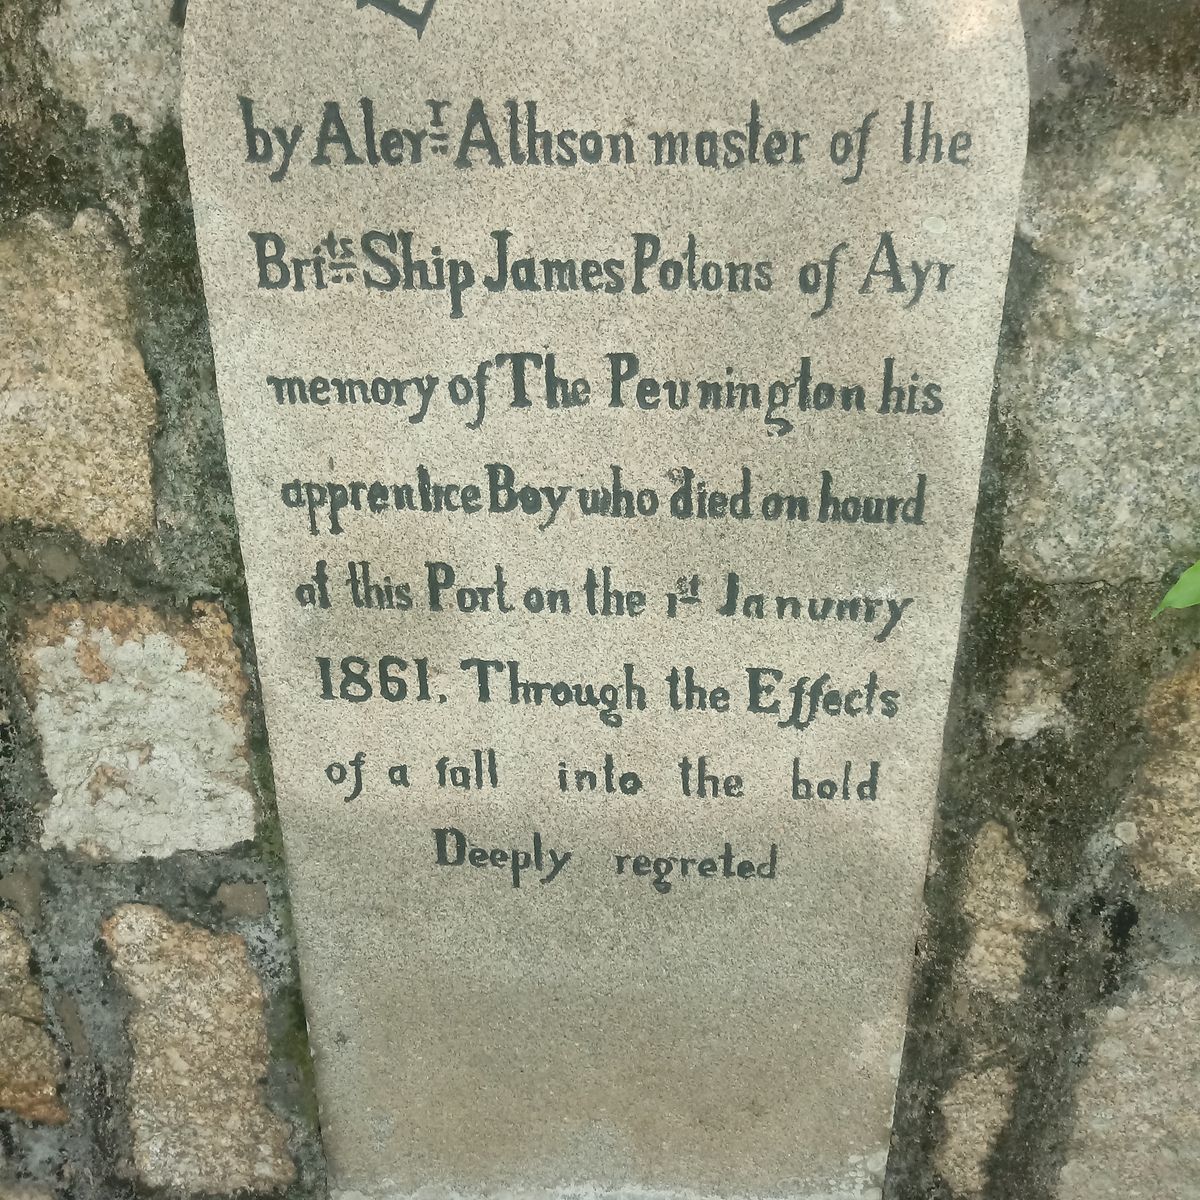 by Aler r Alhson master of the
Brits Ship James Potons of Ayr
memory of The Peunington his
apprentice Boy who died on hourd
of this Port on the 1st Janunry
1861. Through the Effects
of a fall into the hold
Deeply regreted